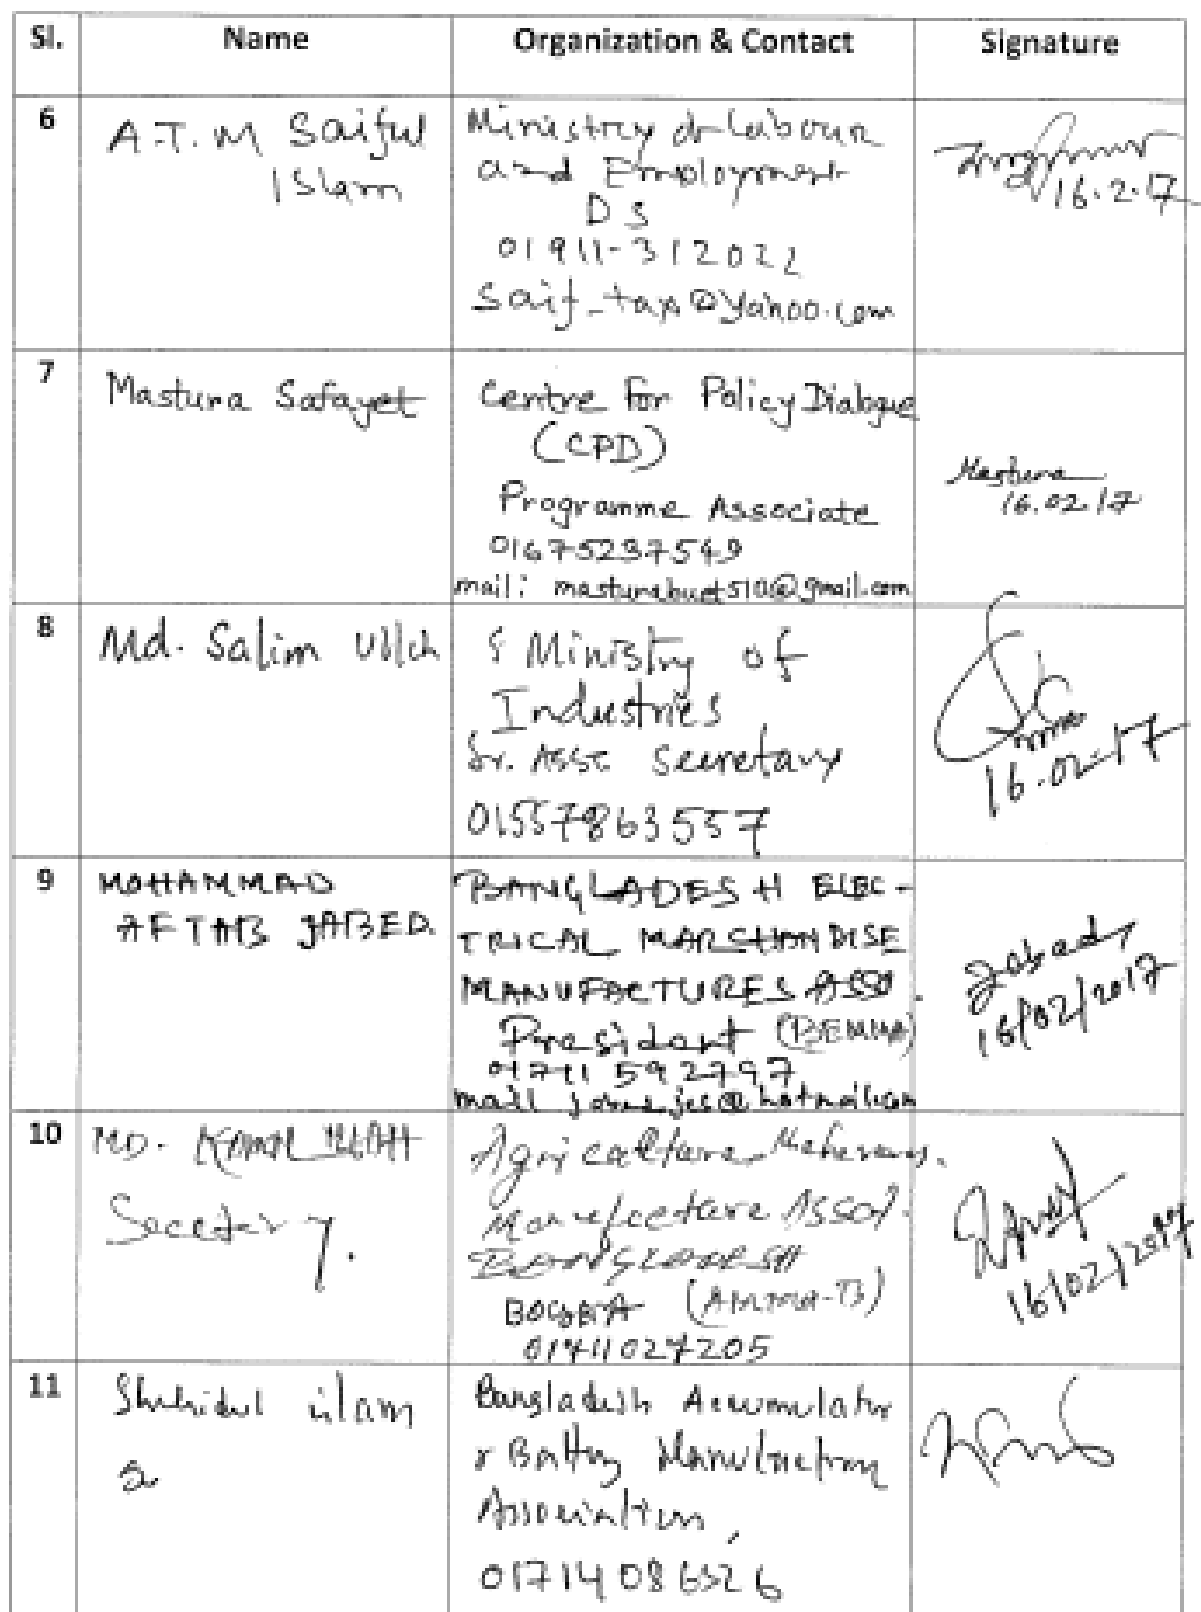 Sl. Name Organization & Contact Signature
6
A.T.M Saiful
Islam
Ministry of Labour
and Employment
DS
01911-312022
saif_tax@yahoo.com
16.2.17
7
Mastura Safayet
Centre for Policy Dialogue
(CPD)
Programme Associate
01675237549
mail: masturabuet510@gmail.com
Mastura
16.02.17
8
Md. Salim Ullah
Ministry of
Industries
Sr. Asst Secretary
01557863557
16.02.17
9
MOHAMMAD
AFTAB JABED.
BANGLADESH ELEC-
TRICAL MARCHANDISE
MANUFACTURES ASSO.
President (BEMMA)
01711592797
mail
Jabed
16/02/2017
10
MD.
Secetary.
Agriculture
Manufecture ASSO.
BOGRA (AMMA-B)
01711027205
16/02/2017
11
Shahidul islam
Bangladesh Accumulator
& Battery Manufacturing
Association,
01714086326